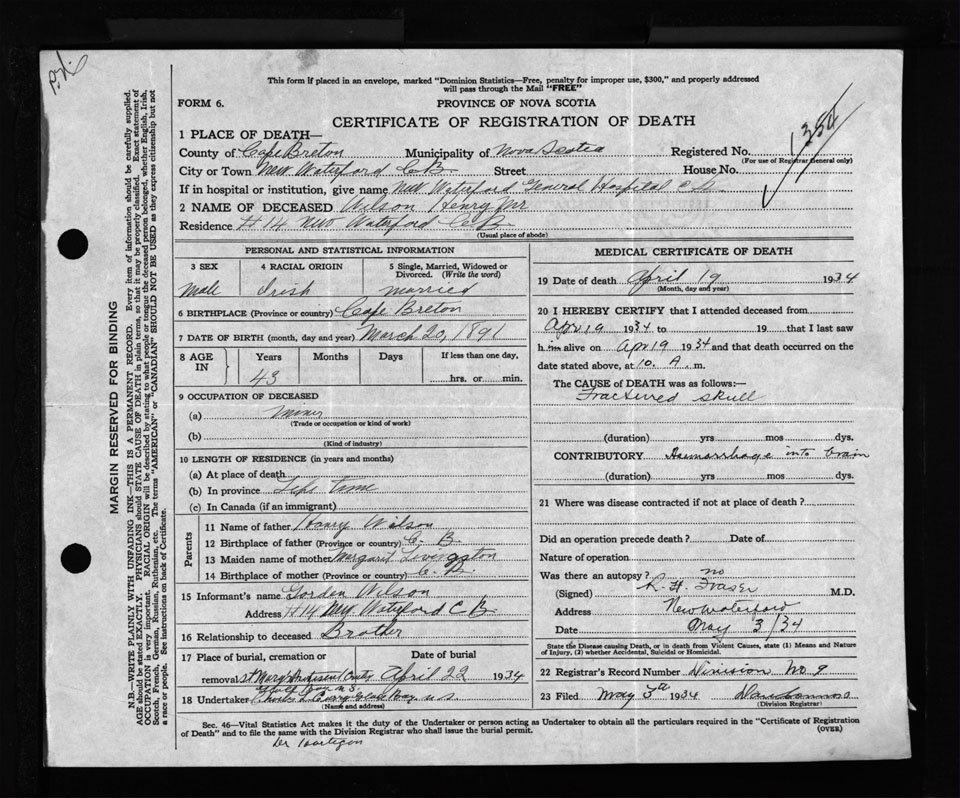 This form if placed in an envelope, marked "Dominion Statistics—Free, penalty for improper use, $300," and properly addressed
will pass through the Mail "FREE"
FORM 6.
PROVINCE OF NOVA SCOTIA
CERTIFICATE OF REGISTRATION OF DEATH
1 PLACE OF DEATH—
County of Cape Breton Municipality of Nova Scotia Registered No.
(For use of Registrar General only)
City or Town New Waterford C B. Street House No.
If in hospital or institution, give name New Waterford General Hospital
2 NAME OF DECEASED Wilson Henry
Residence #14 New Waterford C B.
(Usual place of abode)
PERSONAL AND STATISTICAL INFORMATION
3 SEX 4 RACIAL ORIGIN 5 Single, Married, Widowed or
Divorced. (Write the word)
Male Irish married
6 BIRTHPLACE (Province or country) Cape Breton
7 DATE OF BIRTH (month, day and year) March 20, 1891
8 AGE IN Years Months Days If less than one day,
43 hrs. or min.
9 OCCUPATION OF DECEASED
(a) miner
(Trade or occupation or kind of work)
(b)
(Kind of industry)
10 LENGTH OF RESIDENCE (in years and months)
(a) At place of death
(b) In province Life time
(c) In Canada (if an immigrant)
Parents
11 Name of father Henry Wilson
12 Birthplace of father (Province or country) C. B.
13 Maiden name of mother Margaret Livingston
14 Birthplace of mother (Province or country) C. B.
15 Informant's name Gordon Wilson
Address #14 New Waterford C B
16 Relationship to deceased Brother
17 Place of burial, cremation or Date of burial
removal St Mary's April 22 1934
18 Undertaker Glace Bay N S
(Name and address)
MEDICAL CERTIFICATE OF DEATH
19 Date of death April 19 1934
(Month, day and year)
20 I HEREBY CERTIFY that I attended deceased from
Apr 19 1934 to 19 that I last saw
him alive on Apr 19 1934 and that death occurred on the
date stated above, at 10. A. m.
The CAUSE of DEATH was as follows:—
Fractured skull
(duration) yrs mos dys.
CONTRIBUTORY Haemorrhage into brain
(duration) yrs mos dys.
21 Where was disease contracted if not at place of death?
Did an operation precede death? Date of
Nature of operation
Was there an autopsy? no
(Signed) Fraser M.D.
Address New Waterford
Date May 3/34
State the Disease causing Death, or in death from Violent Causes, state (1) Means and Nature
of Injury, (2) whether Accidental, Suicidal or Homicidal.
22 Registrar's Record Number Division No 9
23 Filed May 1934
(Division Registrar)
Sec. 46—Vital Statistics Act makes it the duty of the Undertaker or person acting as Undertaker to obtain all the particulars required in the "Certificate of Registration
of Death" and to file the same with the Division Registrar who shall issue the burial permit.
(OVER)
Dr Hartigan
MARGIN RESERVED FOR BINDING
N.B.—WRITE PLAINLY WITH UNFADING INK—THIS IS A PERMANENT RECORD. Every item of information should be carefully supplied.
AGE should be stated EXACTLY. PHYSICIANS should STATE CAUSE OF DEATH in plain terms, so that it may be properly classified. Exact statement of
OCCUPATION is very important. RACIAL ORIGIN will be described by stating to what people or tongue the deceased person belonged, whether English, Irish,
Scotch, French, German, Russian, Ruthenian, etc. The terms "AMERICAN" or "CANADIAN" SHOULD NOT BE USED as they express citizenship but not
a race or people. See instructions on back of Certificate.